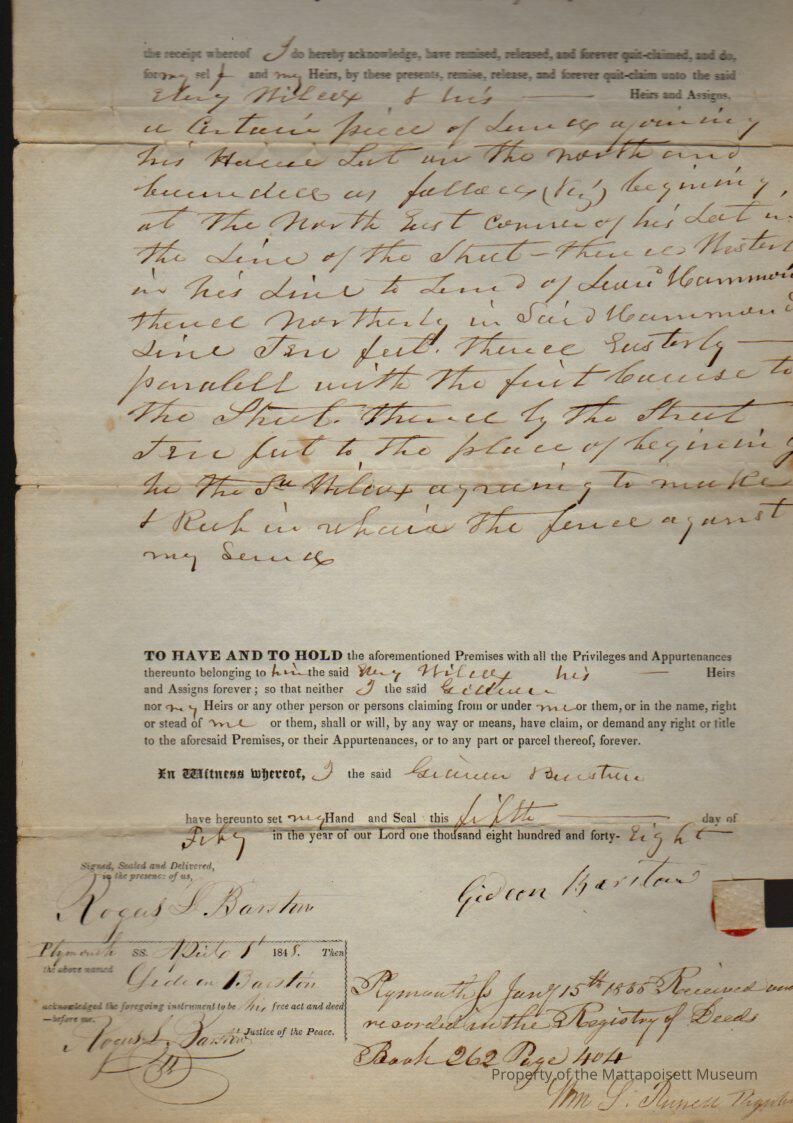 the receipt whereof I do hereby acknowledge, have remised, released, and forever quit-claimed, and do,
for my self and my Heirs, by these presents, remise, release, and forever quit-claim unto the said
Wilcox & his Heirs and Assigns,
a Certain piece of Land ajoining
his House Lot on the north and
bounded as follows (viz) begining,
at the North East corner of his Lot in
the Line of the Street - thence Westerly
in his Line to Land of Hammond
thence Northerly in Said Hammond
Line Ten feet. thence Easterly
paralell with the first Course to
the Street. thence by the Street
Ten feet to the place of begining
he the Sd Wilcox agreing to make
& Keep in repair the fence against
my Land
TO HAVE AND TO HOLD the aforementioned Premises with all the Privileges and Appurtenances
thereunto belonging to him the said Wilcox his Heirs
and Assigns forever; so that neither I the said Gideon
nor my Heirs or any other person or persons claiming from or under me or them, or in the name, right
or stead of me or them, shall or will, by any way or means, have claim, or demand any right or title
to the aforesaid Premises, or their Appurtenances, or to any part or parcel thereof, forever.
In Witness whereof, I the said Gideon Barstow
have hereunto set my Hand and Seal this fifth day of
Feby in the year of our Lord one thousand eight hundred and forty-Eight
Signed, Sealed and Delivered,
in the presence of us,
Gideon Barstow
Rogers L. Barstow
Plymouth SS. April 1848. Then
the above named
Gideon Barstow
acknowledged the foregoing instrument to be his free act and deed
—before me.
Rogers L. Barstow Justice of the Peace.
Plymouth ss Jany 15th Received and
recorded in the Registry of Deeds
Book 262 Page 404
Wm S. Russell Register
Property of the Mattapoisett Museum